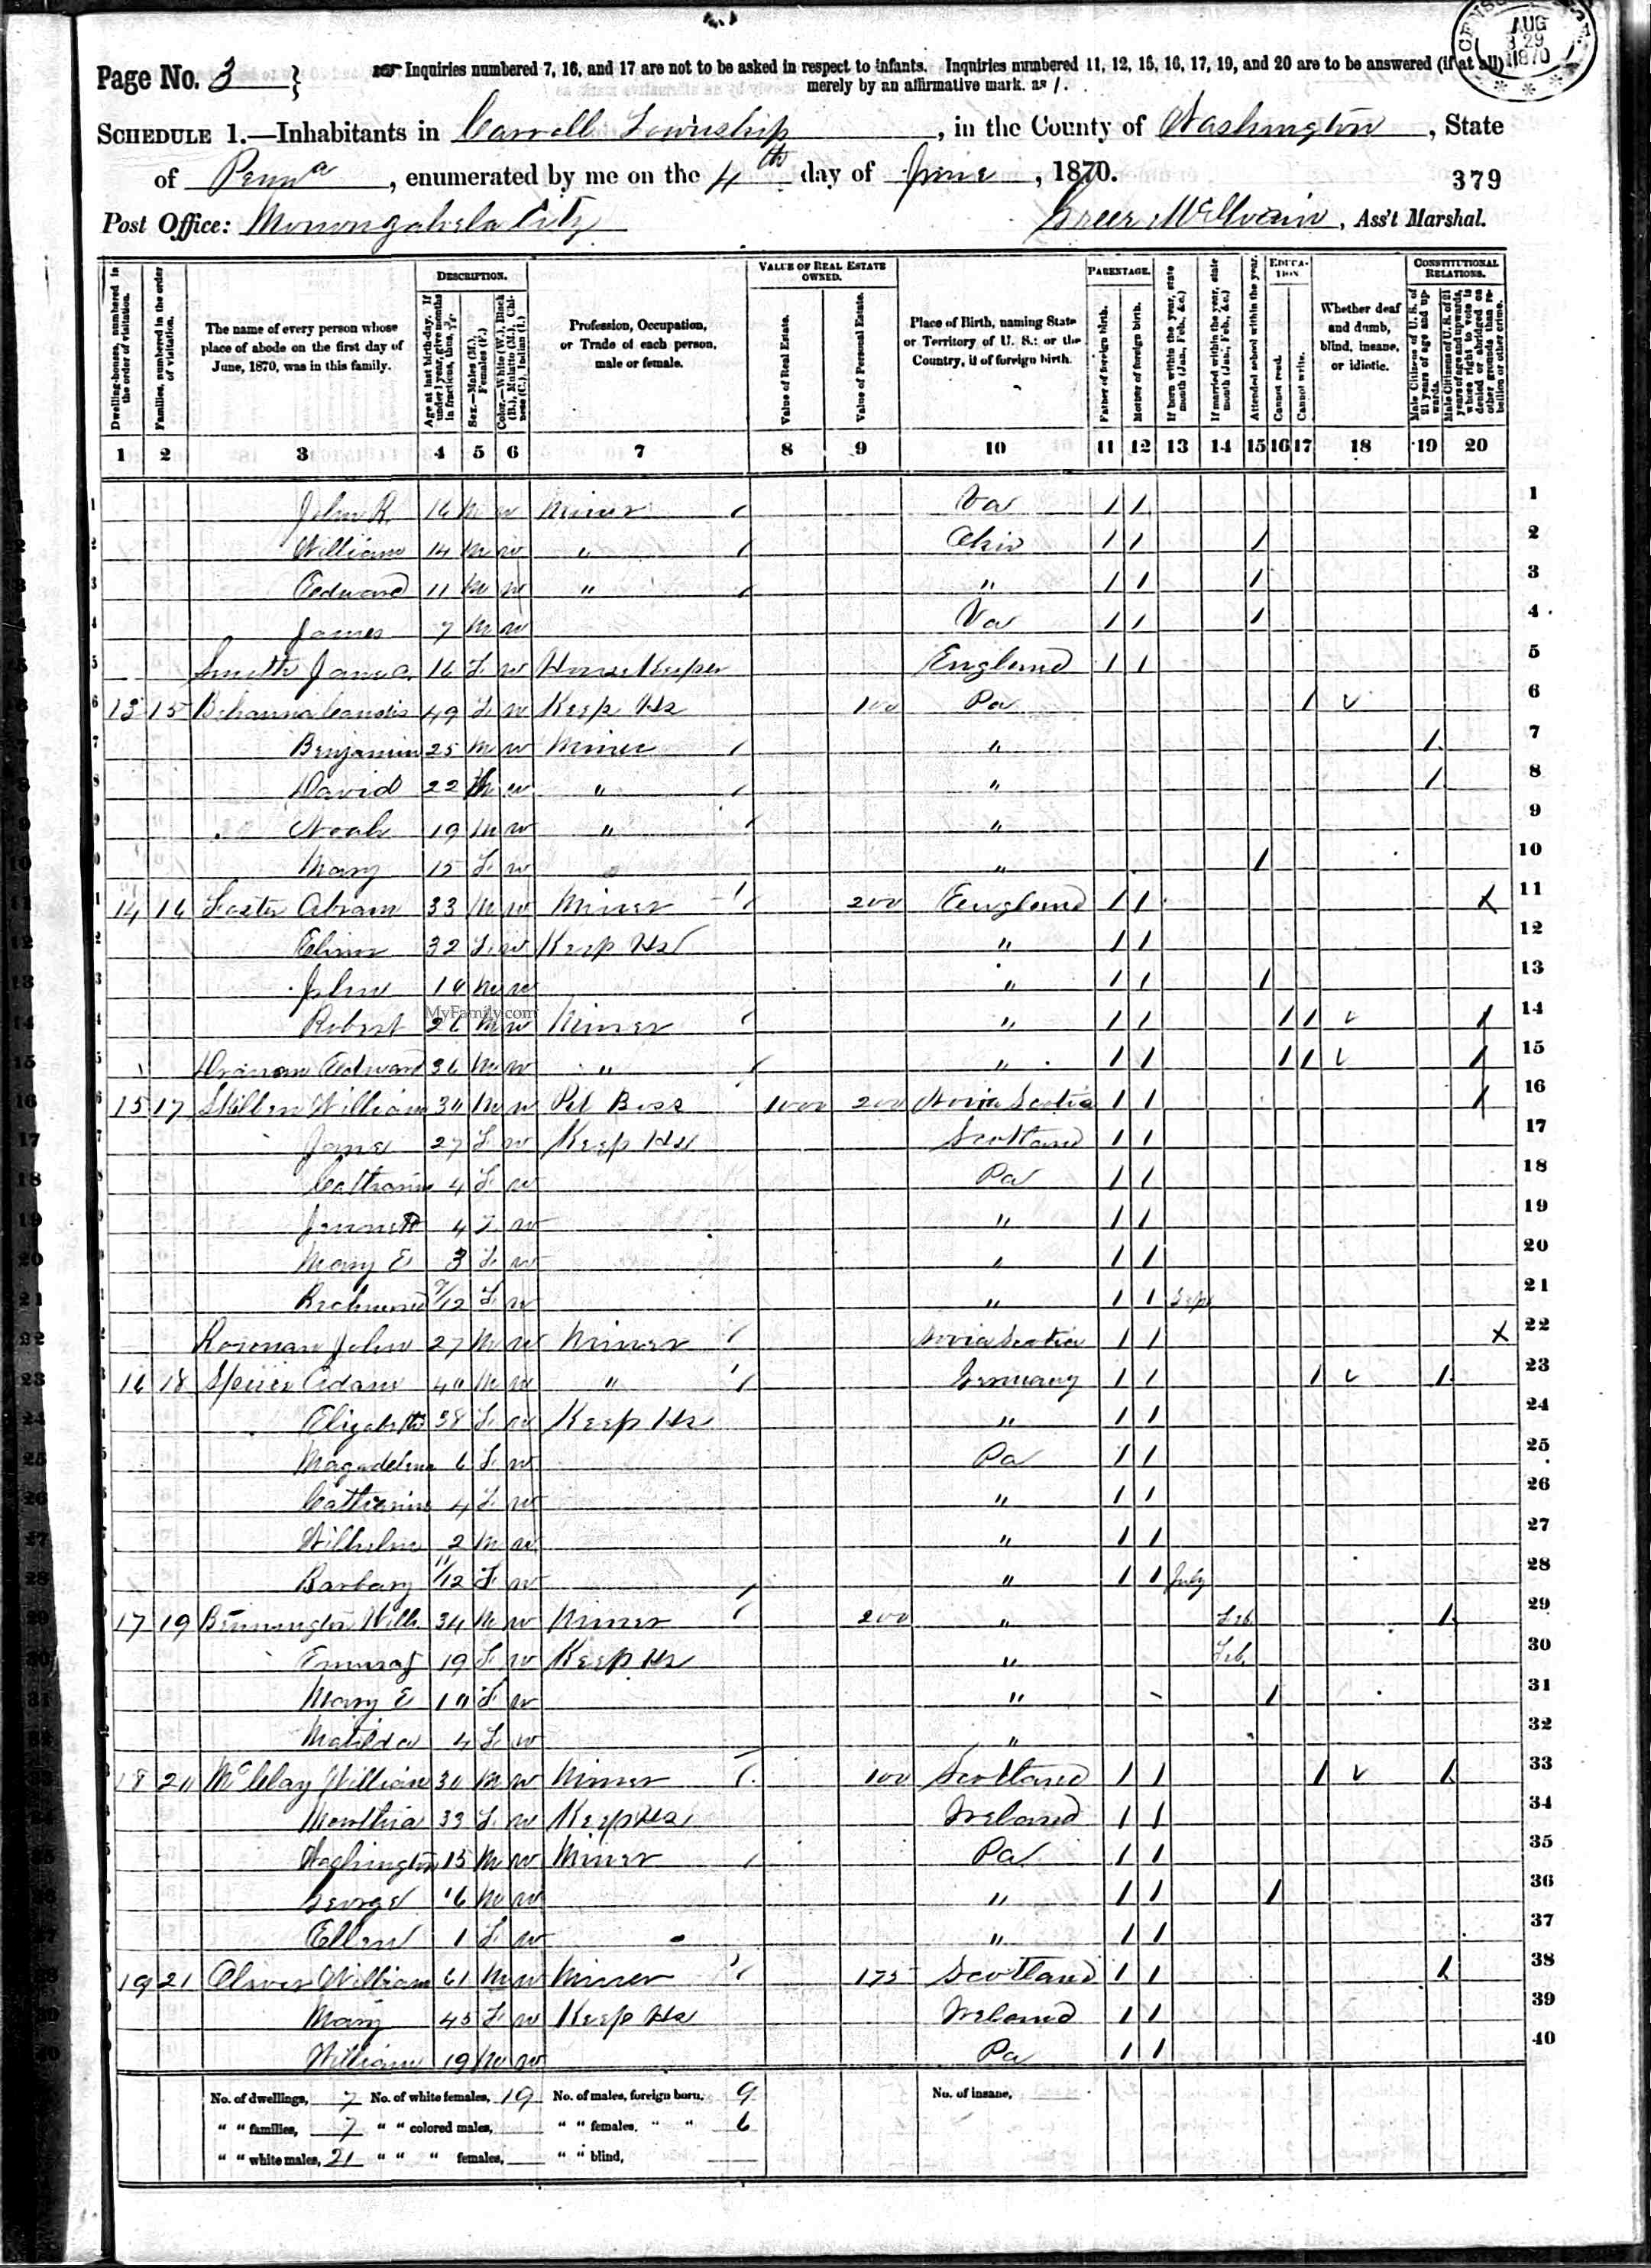 CENSUS AUG 29 1870
Page No. 3 } ☞ Inquiries numbered 7, 16, and 17 are not to be asked in respect to infants. Inquiries numbered 11, 12, 15, 16, 17, 19, and 20 are to be answered (if at all)
merely by an affirmative mark, as /.
SCHEDULE 1.—Inhabitants in Carroll Township, in the County of Washington, State
of Penna, enumerated by me on the 4th day of June, 1870.
379
Post Office: Monongahela City Greer McIlvain, Ass't Marshal.
DESCRIPTION. VALUE OF REAL ESTATE OWNED. PARENTAGE. EDUCATION. CONSTITUTIONAL RELATIONS.
Dwelling-houses, numbered in the order of visitation.
Families, numbered in the order of visitation.
The name of every person whose place of abode on the first day of June, 1870, was in this family.
Age at last birth-day. If under 1 year, give months in fractions, thus, 3/12.
Sex.—Males (M.), Females (F.)
Color.—White (W.), Black (B.), Mulatto (M.), Chinese (C.), Indian (I.)
Profession, Occupation, or Trade of each person, male or female.
Value of Real Estate.
Value of Personal Estate.
Place of Birth, naming State or Territory of U. S.; or the Country, if of foreign birth.
Father of foreign birth.
Mother of foreign birth.
If born within the year, state month (Jan., Feb., &c.)
If married within the year, state month (Jan., Feb., &c.)
Attended school within the year.
Cannot read.
Cannot write.
Whether deaf and dumb, blind, insane, or idiotic.
Male Citizens of U. S. of 21 years of age and upwards.
Male Citizens of U. S. of 21 years of age and upwards, whose right to vote is denied or abridged on other grounds than rebellion or other crime.
1 2 3 4 5 6 7 8 9 10 11 12 13 14 15 16 17 18 19 20
1 John R. 16 M W Miner / Va / / 1
2 William 14 M W " / Ohio / / / 2
3 Edward 11 M W " / " / / / 3
4 James 7 M W Va / / / 4
5 Smith Jane A. 16 F W House Keeper England / / 5
6 13 15 Behanna 49 F W Keep Hs 100 Pa / v 6
7 Benjamin 25 M W Miner / " / 7
8 David 22 M W " / " / 8
9 Noah 19 M W " / " 9
10 Mary 15 F W " / 10
11 14 16 Foster Abram 33 M W Miner / 200 England / / X 11
12 32 F W Keep Hs " / / 12
13 John 10 M W " / / / 13
MyFamily.com
14 Robert 26 M W Miner / " / / / / v / 14
15 Edward 36 M W " / " / / / / v / 15
16 15 17 William 30 M W Pit Boss 1000 200 Nova Scotia / / / 16
17 Jane 27 F W Keep Hs Scotland / / 17
18 Catharine 4 F W Pa / / 18
19 Jennett 4 F W " / / 19
20 Mary E 3 F W " / / 20
21 Richmond 9/12 F W " / / Sep 21
22 John 27 M W Miner / Nova Scotia / / X 22
23 16 18 Adam 40 M W " / Germany / / / v / 23
24 Elizabeth 38 F W Keep Hs " / / 24
25 Magadelena 6 F W Pa / / 25
26 Catharine 4 F W " / / 26
27 Wilhelm 2 M W " / / 27
28 Barbary 11/12 F W " / / July 28
29 17 19 Bennington Will 34 M W Miner / 200 " Feb. / 29
30 Emma J 19 F W Keep Hs " Feb. 30
31 Mary E 10 F W " / 31
32 Matilda 4 F W " 32
33 18 20 McClay William 30 M W Miner / 100 Scotland / / / v / 33
34 33 F W Keep Hs Ireland / / 34
35 Washington 15 M W Miner / Pa / / 35
36 George 6 M W " / / / 36
37 Ellen 1 F W " / / 37
38 19 21 Oliver William 61 M W Miner / 175 Scotland / / / 38
39 Mary 45 F W Keep Hs Ireland / / 39
40 William 19 M W Pa / / 40
No. of dwellings, 7 No. of white females, 19 No. of males, foreign born, 9 No. of insane,
" " families, 7 " " colored males, " " females, " " 6
" " white males, 21 " " " females, " " blind,